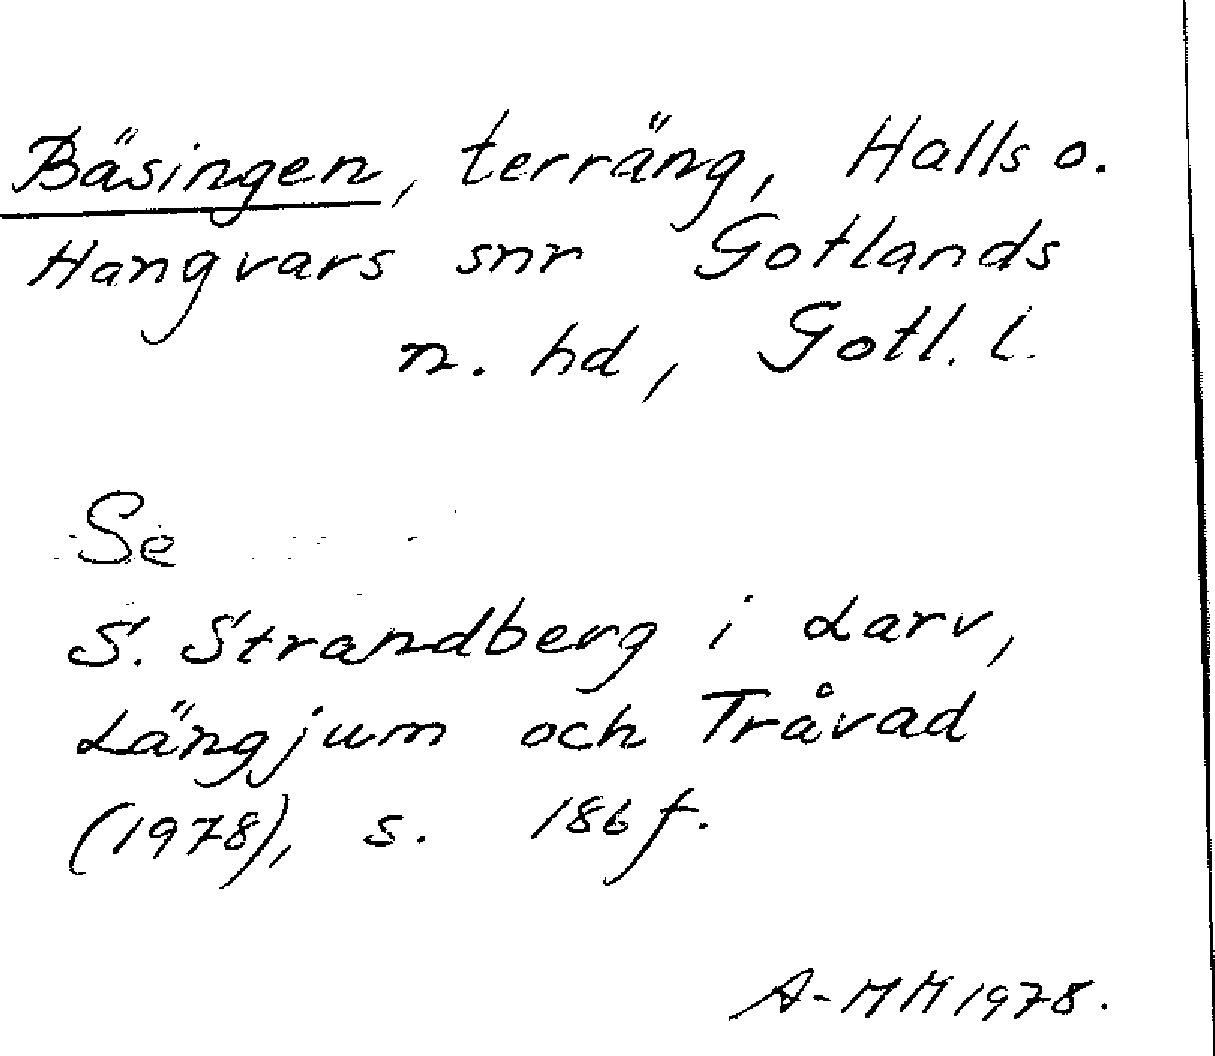 Bäsingen, terräng, Halls o.
Hangvars snr Gotlands
n. hd, Gotl. l.
Se
S. Strandberg i Larv,
Längjum och Tråvad
(1978), s. 186 f.
A-MM 1978.